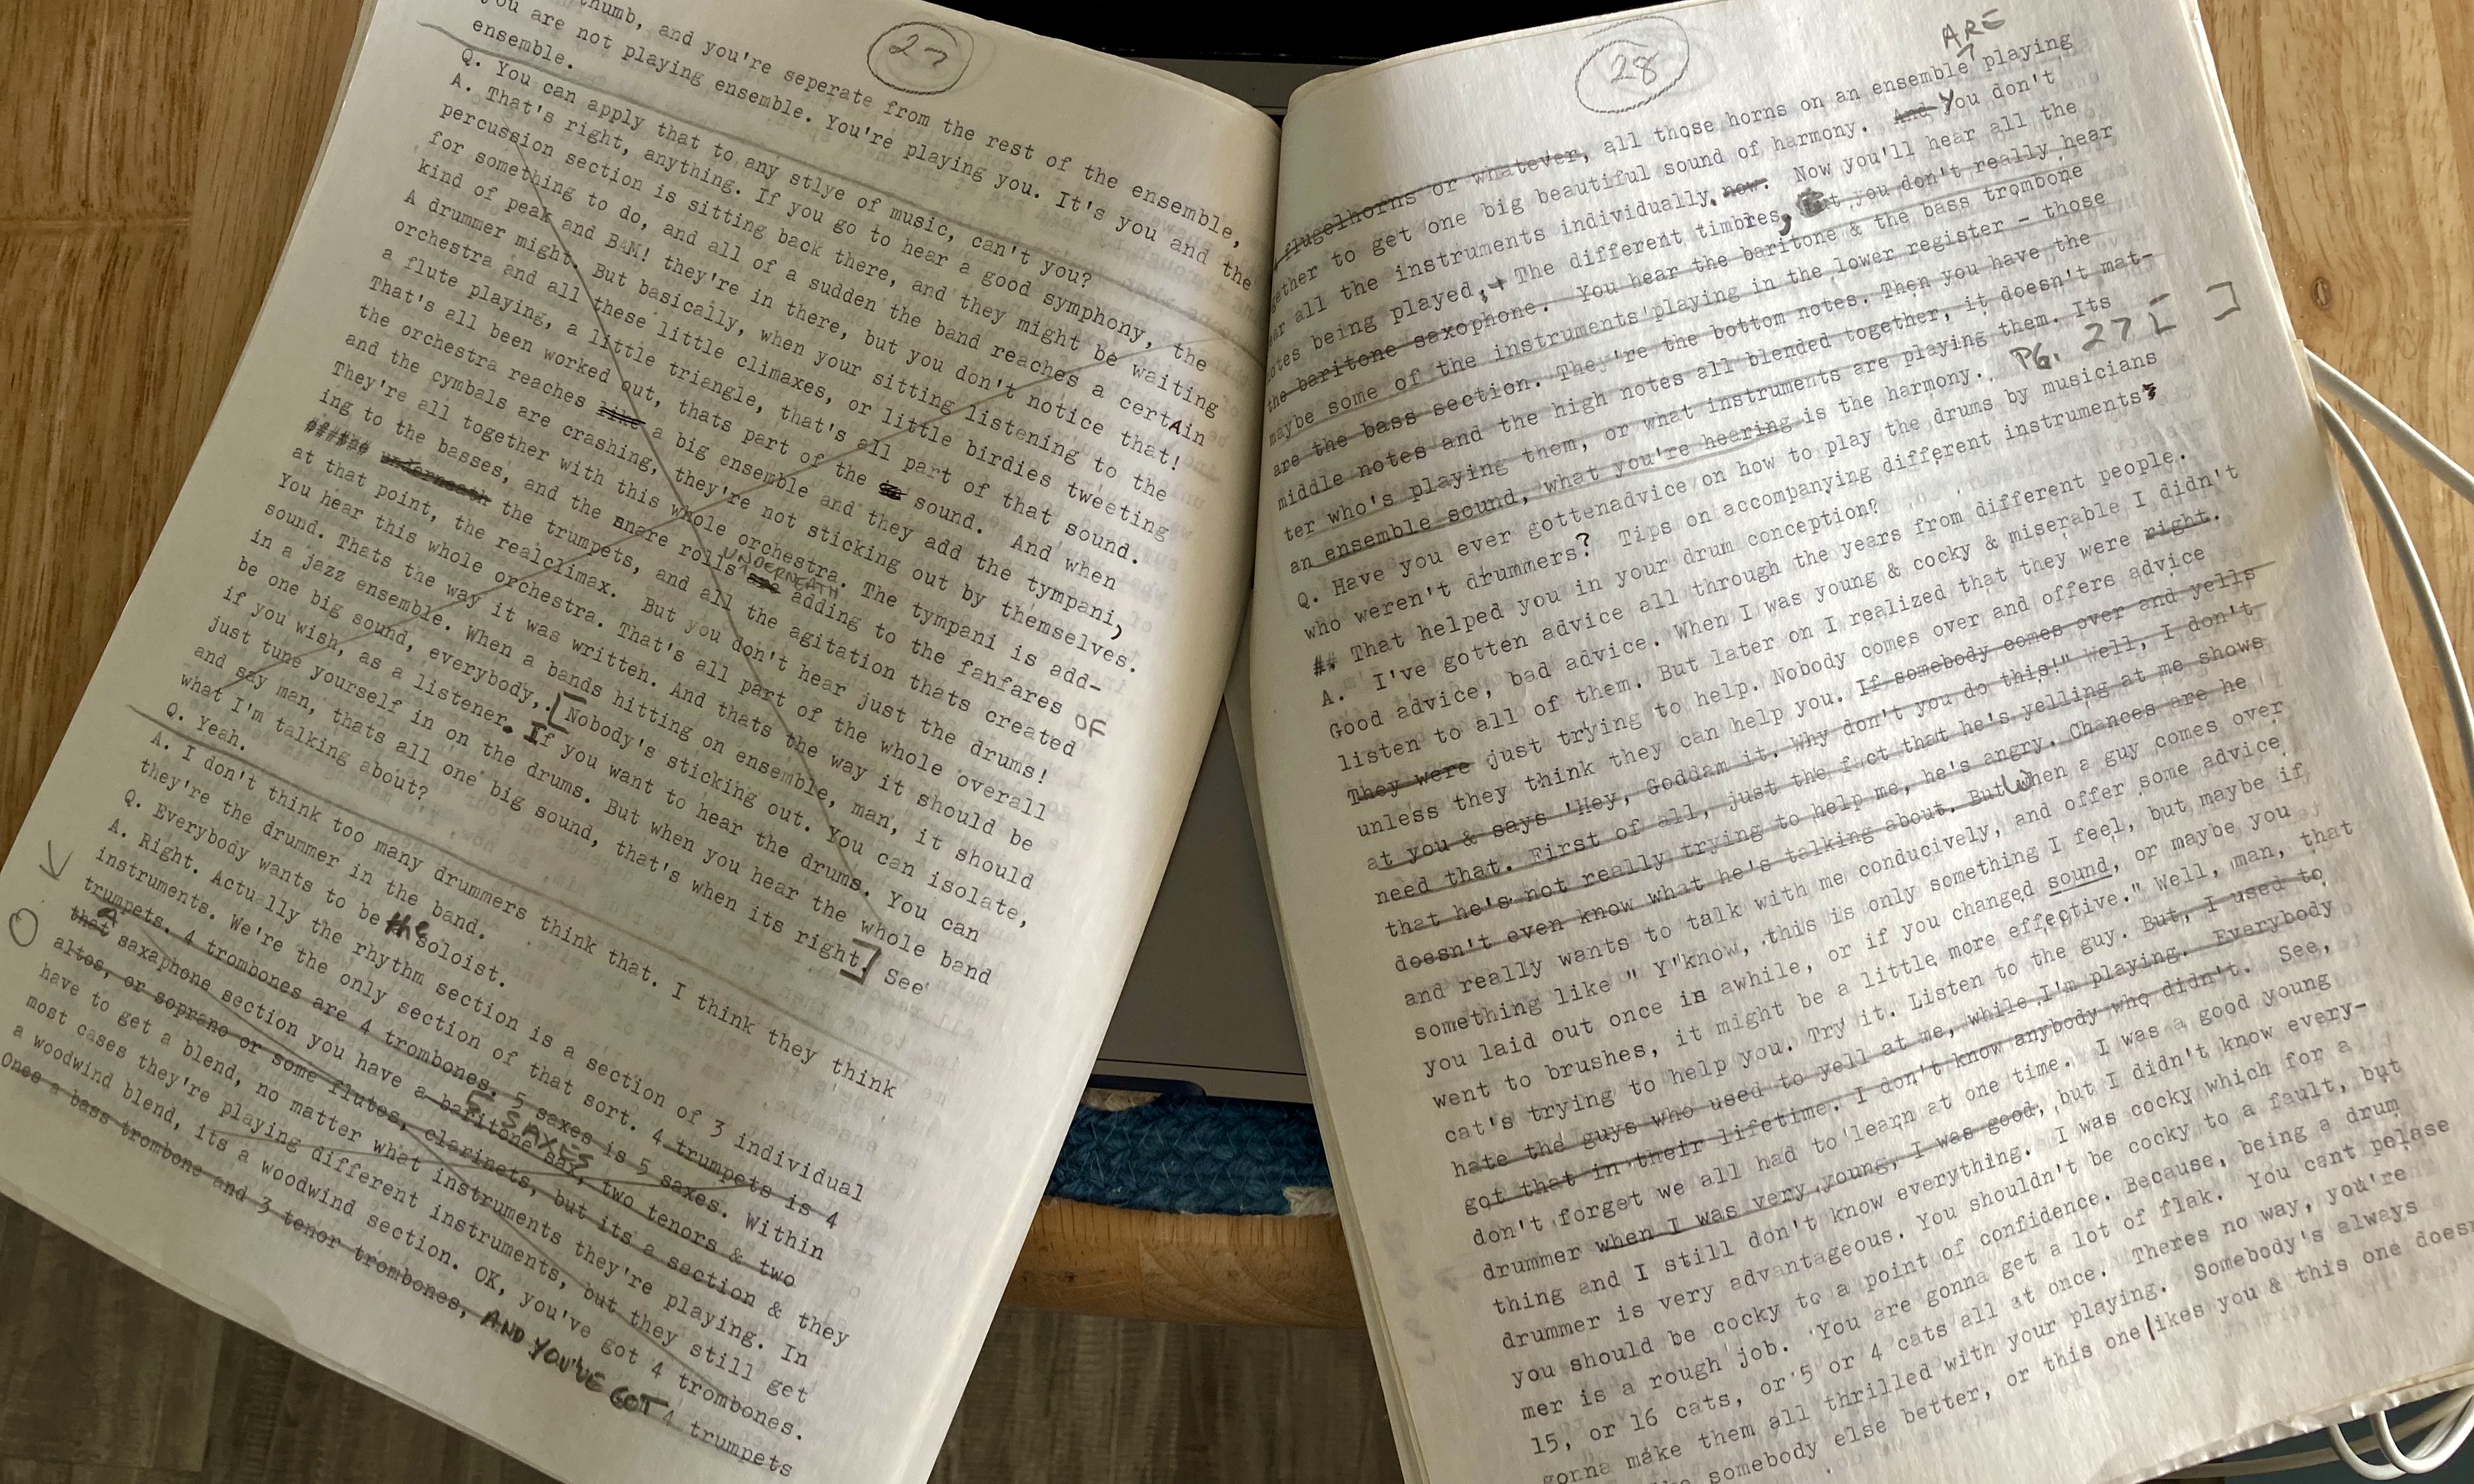 27
thumb, and you're seperate from the rest of the ensemble,
you are not playing ensemble. You're playing you. It's you and the
ensemble.
Q. You can apply that to any stlye of music, can't you?
A. That's right, anything. If you go to hear a good symphony, the
percussion section is sitting back there, and they might be waiting
for something to do, and all of a sudden the band reaches a certAin
kind of peak and BAM! they're in there, but you don't notice that!
A drummer might. But basically, when your sitting listening to the
orchestra and all these little climaxes, or little birdies tweeting
a flute playing, a little triangle, that's all part of that sound.
That's all been worked out, thats part of the sound. And when
the orchestra reaches like a big ensemble and they add the tympani,
and the cymbals are crashing, they're not sticking out by themselves.
They're all together with this whole orchestra. The tympani is add-
ing to the basses, and the snare rolls are UNDERNEATH adding to the fanfares OF
underneath the trumpets, and all the agitation thats created
at that point, the realclimax. But you don't hear just the drums!
You hear this whole orchestra. That's all part of the whole overall
sound. Thats the way it was written. And thats the way it should be
in a jazz ensemble. When a bands hitting on ensemble, man, it should
be one big sound, everybody,. [Nobody's sticking out. You can isolate,
if you wish, as a listener. If you want to hear the drums. You can
just tune yourself in on the drums. But when you hear the whole band
and say man, thats all one big sound, that's when its right.] See
what I'm talking about?
Q. Yeah.
A. I don't think too many drummers think that. I think they think
they're the drummer in the band.
Q. Everybody wants to be the soloist.
A. Right. Actually the rhythm section is a section of 3 individual
instruments. We're the only section of that sort. 4 trumpets is 4
trumpets. 4 trombones are 4 trombones. 5 saxes is 5 saxes. Within
that A saxaphone section you have a baritone sax, 5 SAXES two tenors & two
altos, or soprano or some flutes, clarinets, but its a section & they
have to get a blend, no matter what instruments they're playing. In
most cases they're playing different instruments, but they still get
a woodwind blend, its a woodwind section. OK, you've got 4 trombones.
Once a bass trombone and 3 tenor trombones, AND YOU'VE GOT 4 trumpets
28
flugelhorns or whatever, all those horns on an ensemble ARE playing
gether to get one big beautiful sound of harmony. And You don't
ear all the instruments individually. now. Now you'll hear all the
notes being played, + The different timbres, but you don't really hear
the baritone saxophone. You hear the baritone & the bass trombone
maybe some of the instruments playing in the lower register - those
are the bass section. They're the bottom notes. Then you have the
middle notes and the high notes all blended together, it doesn't mat-
ter who's playing them, or what instruments are playing them. Its
an ensemble sound, what you're hearing is the harmony. PG. 27 [ ]
Q. Have you ever gottenadvice on how to play the drums by musicians
who weren't drummers? Tips on accompanying different instruments?
That helped you in your drum conception?
A. I've gotten advice all through the years from different people.
Good advice, bad advice. When I was young & cocky & miserable I didn't
listen to all of them. But later on I realized that they were right.
They were just trying to help. Nobody comes over and offers advice
unless they think they can help you. If somebody comes over and yells
at you & says 'Hey, Goddam it. Why don't you do this!" Well, I don't
need that. First of all, just the fact that he's yelling at me shows
that he's not really trying to help me, he's angry. Chances are he
doesn't even know what he's talking about. But When a guy comes over
and really wants to talk with me conducively, and offer some advice
something like " Y"know, this is only something I feel, but maybe if
you laid out once in awhile, or if you changed sound, or maybe you
went to brushes, it might be a little more effective." Well, man, that
cat's trying to help you. Try it. Listen to the guy. But, I used to
hate the guys who used to yell at me, while I'm playing. Everybody
got that in their lifetime. I don't know anybody who didn't. See,
don't forget we all had to learn at one time. I was a good young
drummer when I was very young, I was good, but I didn't know every-
thing and I still don't know everything. I was cocky which for a
drummer is very advantageous. You shouldn't be cocky to a fault, but
you should be cocky to a point of confidence. Because, being a drum
mer is a rough job. You are gonna get a lot of flak. You cant pelase
15, or 16 cats, or 5 or 4 cats all at once. Theres no way, you're
gonna make them all thrilled with your playing. Somebody's always
somebody else better, or this one likes you & this one does